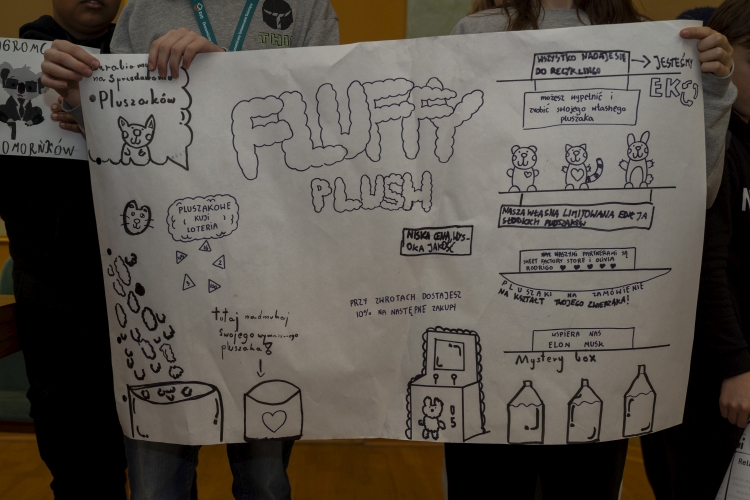 OMORNKÓW
na sprzedawaniu
Pluszaków
FLUFFY
PLUSH
PLUSZAKOWE
KUJI
LOTERIA
tutaj nadmuchaj
swojego wymarzonego
pluszaka
NISKA CENA, WYS-
OKA JAKOŚĆ
PRZY ZWROTACH DOSTAJESZ
10% NA NASTĘPNE ZAKUPY
WSZYSTKO NADAJE SIĘ
DO RECYKLINGU
JESTEŚMY
EKO
możesz wypełnić i
zrobić swojego własnego
pluszaka
NASZA WŁASNA LIMITOWANA EDYCJA
SŁODKICH PLUSZAKÓW
SWEET FACTORY STORE I OLIVIA
RODRIGO
PLUSZAKI NA ZAMÓWIENIE
NA KSZTAŁT TWOJEGO ZWIERZAKA!
WSPIERA NAS
ELON MUSK
Mystery box